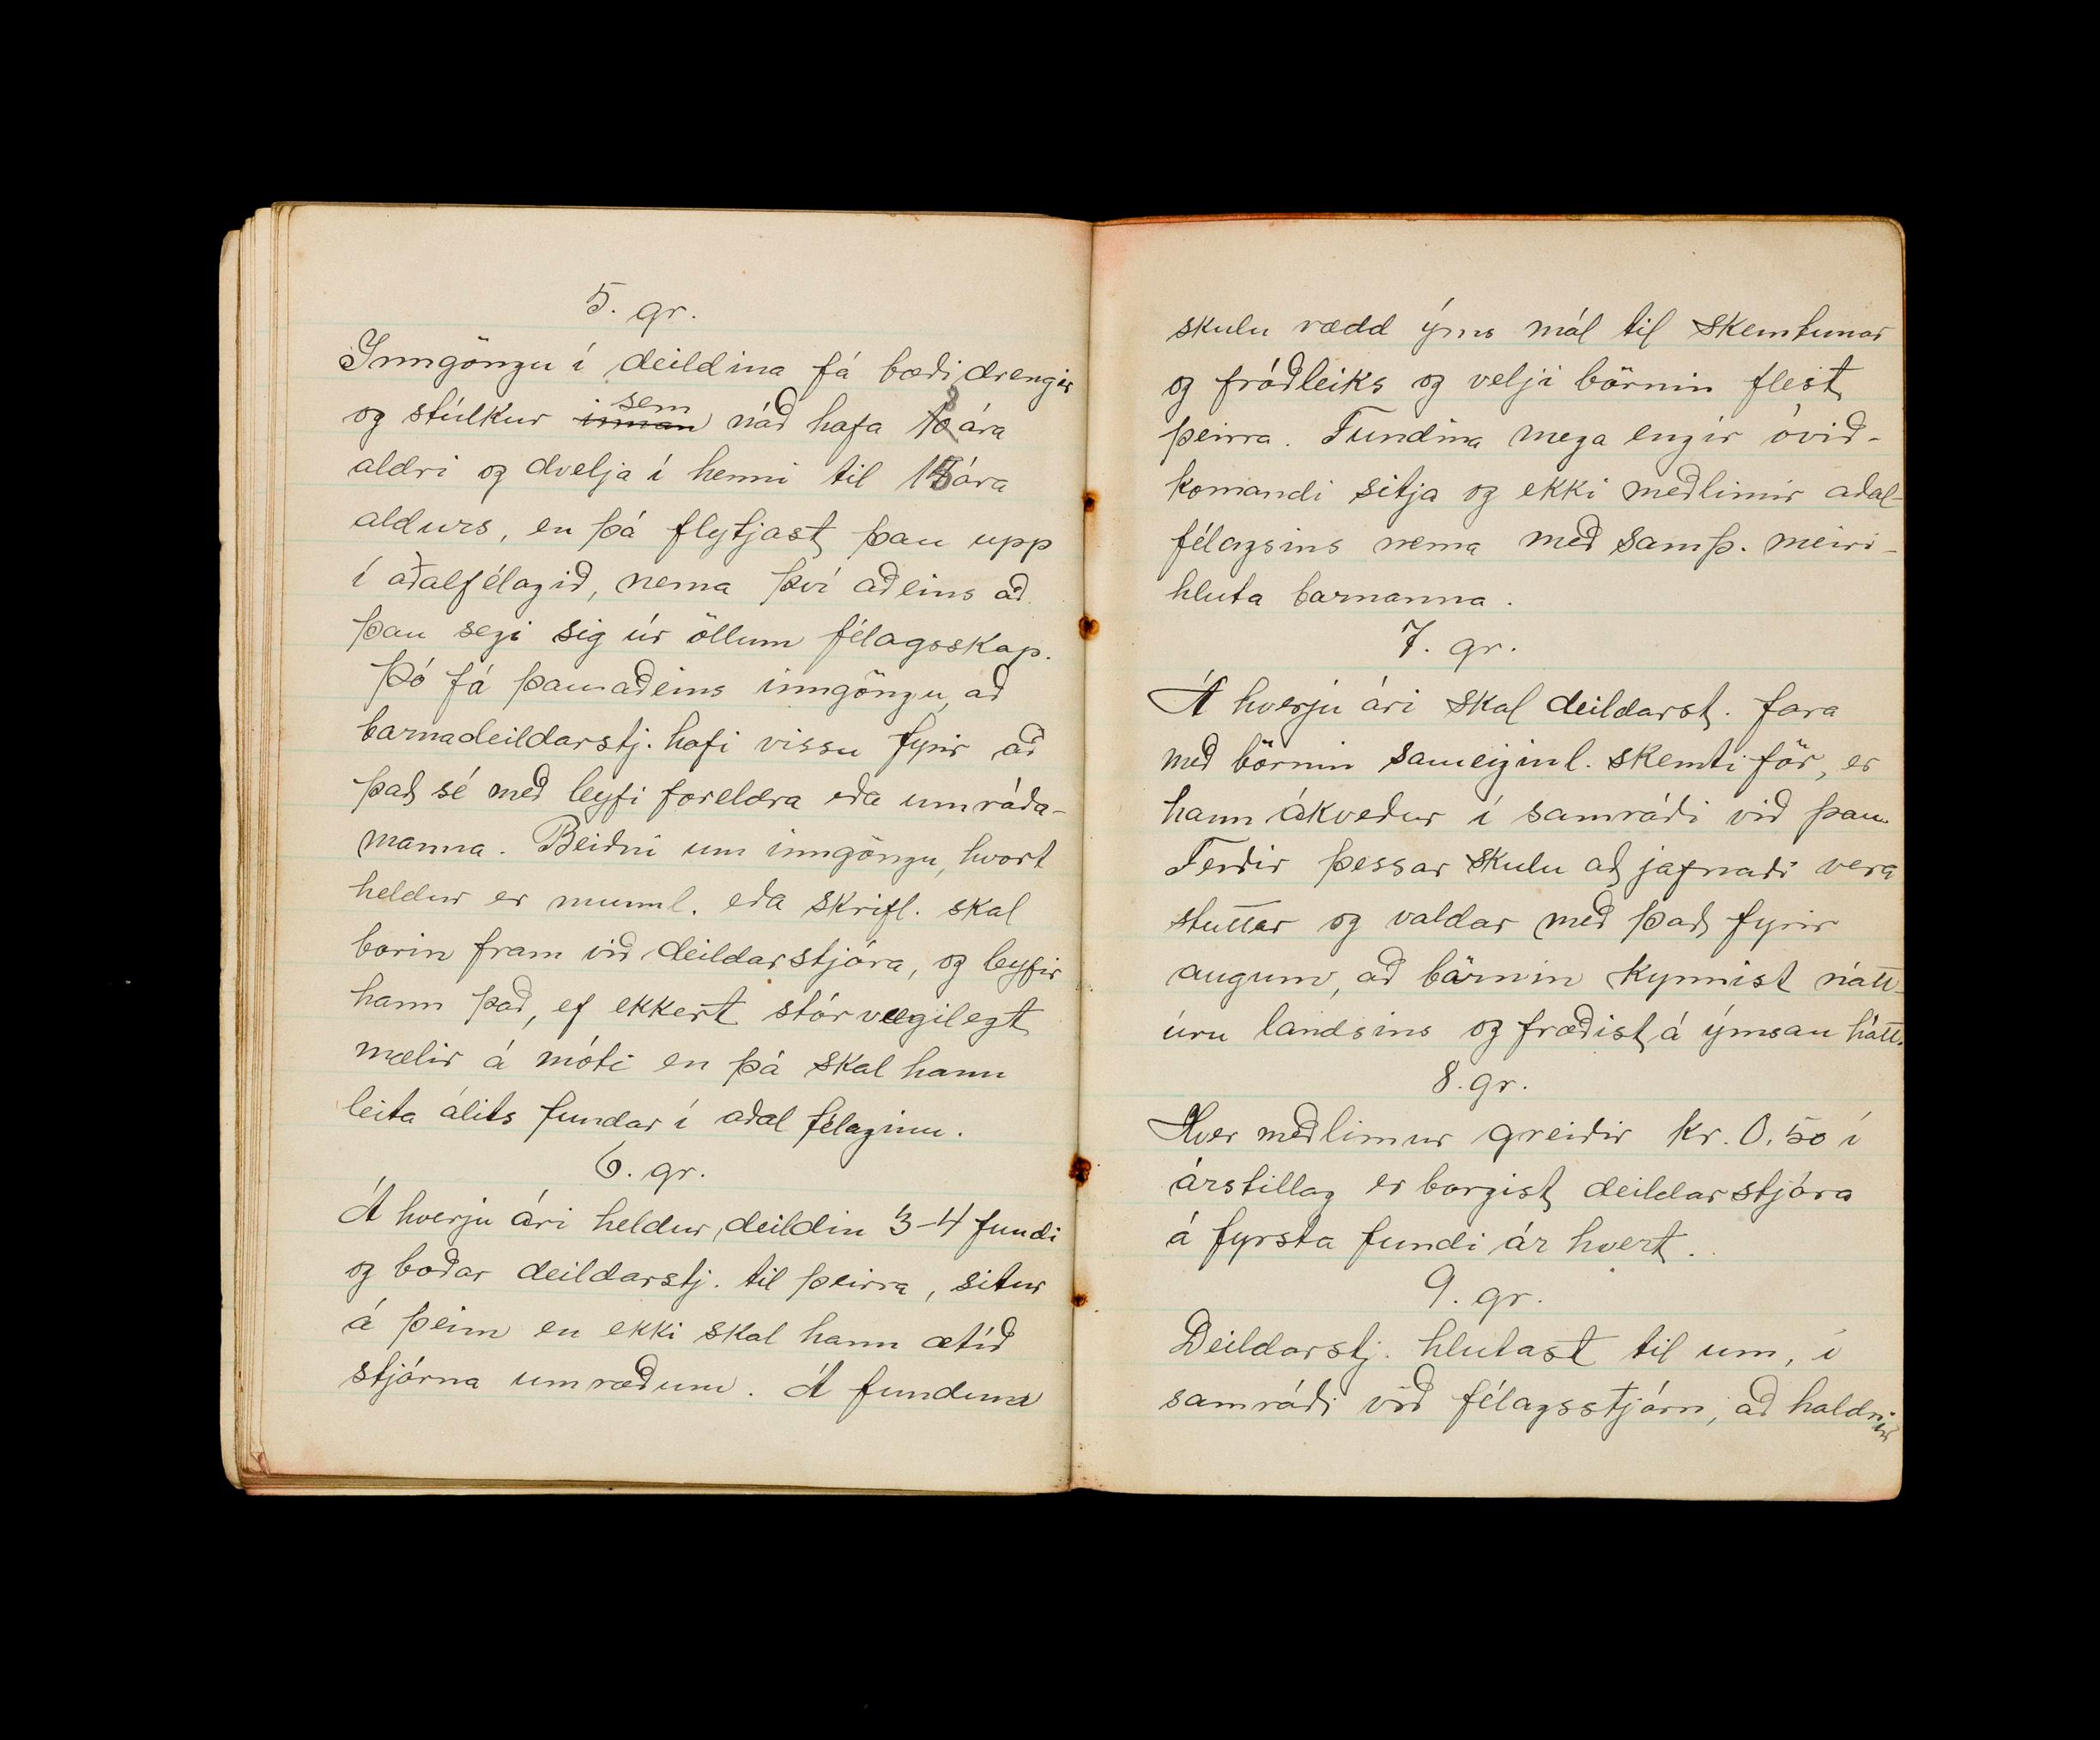 5. gr.
Inngöngu í deildina fá bæði drengir
og stúlkur innan sem náð hafa 8 ára
aldri og dvelja í henni til 15 ára
aldurs, en þá flytjast þau upp
í aðalfélagið, nema því aðeins að
þau segi sig úr öllum félagsskap.
Þó fá þau aðeins inngöngu, að
barnadeildarstj. hafi vissu fyrir að
það sé með leyfi foreldra eða umráða-
manna. Beiðni um inngöngu, hvort
heldur er munnl. eða skrifl. skal
borin fram við deildarstjóra, og leyfir
hann það, ef ekkert stórvægilegt
mælir á móti en þá skal hann
leita álits fundar í aðal félaginu.
6. gr.
Á hverju ári heldur deildin 3-4 fundi
og boðar deildarstj. til þeirra, situr
á þeim en ekki skal hann ætíð
stjórna umræðum. Á fundum
skulu rædd ýms mál til skemtunar
og fróðleiks og velji börnin flest
þeirra. Fundina mega engir óvið-
komandi sitja og ekki meðlimir aðal-
félagsins nema með samþ. meiri-
hluta barnanna.
7. gr.
Á hverju ári skal deildarst. fara
með börnin sameiginl. skemtiför, er
hann ákveður í samráði við þau.
Ferðir þessar skulu að jafnaði vera
stuttar og valdar með það fyrir
augum, að börnin kynnist nátt-
úru landsins og fræðist á ýmsan hátt.
8. gr.
Hver meðlimur greiðir kr. 0,50 í
árstillag er borgist deildarstjóra
á fyrsta fundi ár hvert.
9. gr.
Deildarstj. hlutast til um, í
samráði við félagsstjórn, að haldnir